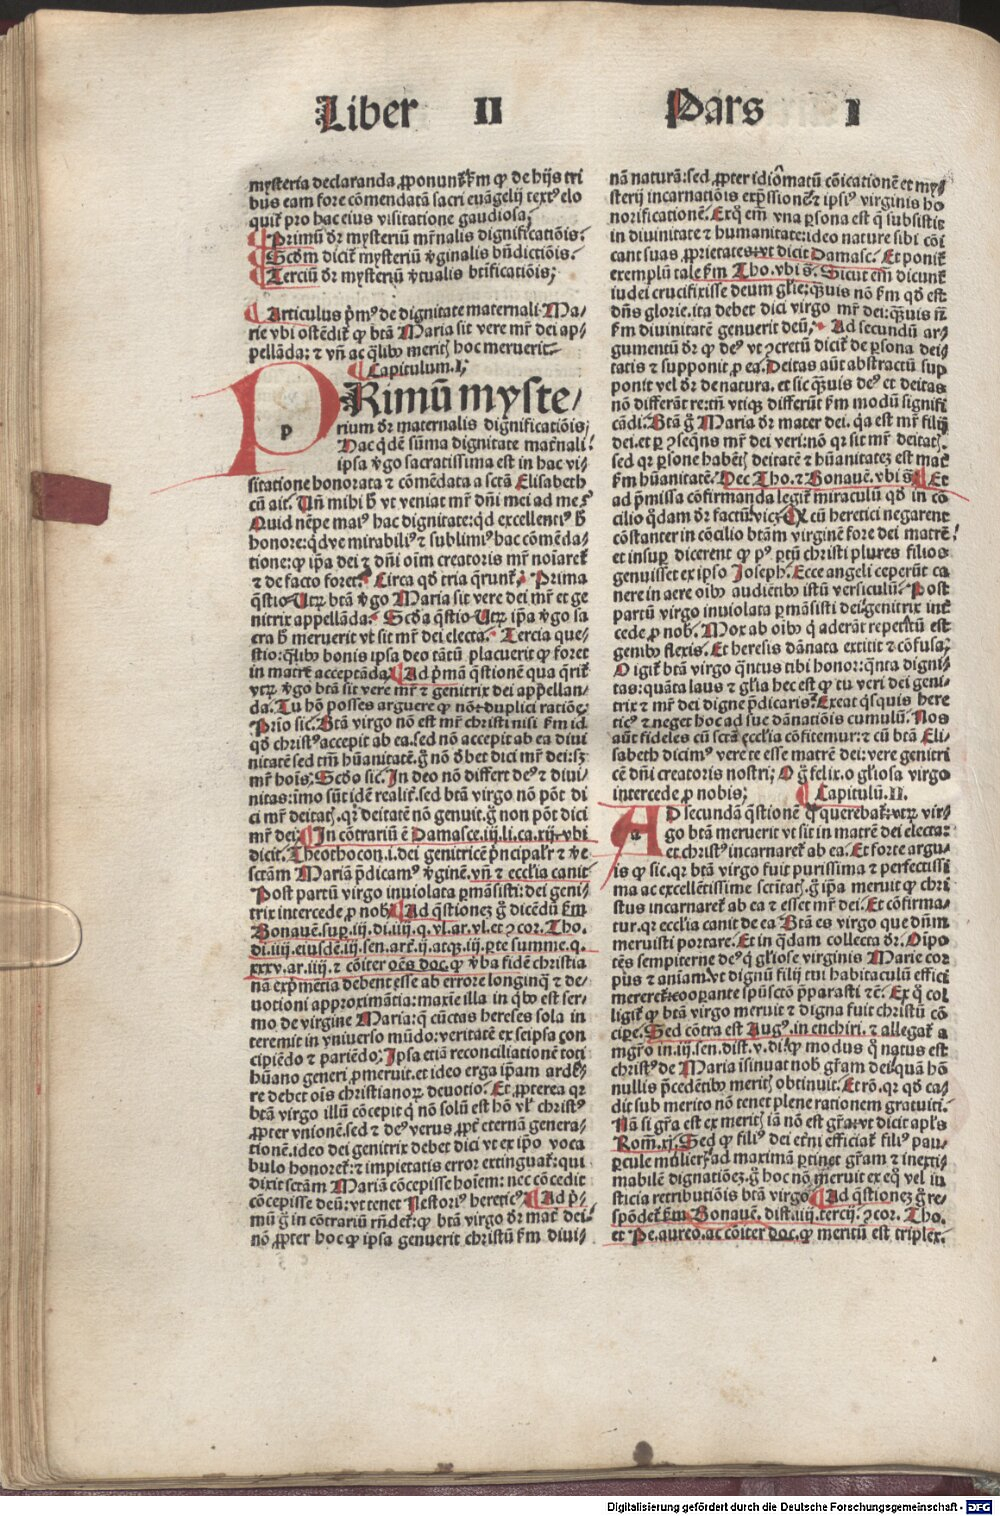 Liber II Pars I
mysteria declaranda ꝓponunt᷑ ẜm ꝙ de hijs tri
bus eam fore cōmendatā sacri euāgelij textꝰ elo
quit᷑ pro hac eius visitatione gaudiosa;
Primū dr̄ mysteriū mr̄nalis dignificatiōis.
Scd̄m dicit᷑ mysteriū v̓ginalis bn̄dictiōis.
Terciū dr̄ mysteriū v̓tualis btīficatiōis;
Articulus p̄mꝰ de dignitate maternali Ma/
rie vbi ostēdit᷑ ꝙ btā Maria sit vere mr̄ dei ap/
pellāda: ⁊ vn̄ ac q̄libꝫ meritꝭ hoc meruerit.
Capitulum.I;
PRimū myste/
p
rium dr̄ maternalis dignificatiōis;
Hac qͥdē sūma dignitate mat̓nali
ipsa v̓go sacratissima est in hac vi/
sitatione honorata ⁊ cōmēdata a sctā Elisabeth
cū ait. Vn̄ mihi h̄ vt veniat mr̄ dn̄i mei ad me?
Quid nēpe maiꝰ hac dignitate: qͥd excellentiꝰ h̄
honore: qͥdve mirabiliꝰ ⁊ sublimiꝰ hac cōmēda/
tione: ꝙ ip̄a dei ⁊ dn̄i oīm creatoris mr̄ noīaret᷑
⁊ de facto foret. Circa qd̄ tria q̄runt᷑. Prima
q̄stio Vtꝝ btā v̓go Maria sit vere dei mr̄ et ge
nitrix appellāda. Scd̓a q̄stio Vtꝝ ip̄a v̓go sa
cra h̄ meruerit vt sit mr̄ dei electa. Tercia que/
stio: q̄libꝫ bonis ipsa deo tātū placuerit ꝙ foret
in matrē acceptāda. Ad p̄mā q̄stionē qua q̄rit᷑
vtꝝ v̓go btā sit vere mr̄ ⁊ genitrix dei appellan/
da. Tu hō posses arguere ꝙ nō duplici ratiōe.
Prio sic. Btā virgo nō est mr̄ christi nisi ẜm id
qd̄ christꝰ accepit ab ea. sed nō accepit ab ea diui
nitatē sed tm̄ hūanitatē. g̊ nō dꝫ bet dici mr̄ dei: sꝫ
mr̄ hoīs. Scd̓o sic. In deo nō differt deꝰ ⁊ diui/
nitas: imo sūt idē realit̓. sed btā virgo nō pōt di
ci mr̄ deitatꝭ. qꝛ deitatē nō genuit. g̊ non pōt dici
mr̄ dei. In cōtrariū ē Damasce. iij. li. ca. xij. vbi
dicit. Theothocon. i. dei genitricē p̄ncipalr̄ ⁊ v̓e
sctām Mariā p̄dicamꝰ v̓ginē. vn̄ ⁊ eccl̓ia canit
Post partū virgo inuiolata ꝑmāsisti: dei geni/
trix intercede ꝓ nobꝭ. Ad q̄stionē g̊ dicēdū ẜm
Bonauē. sup. iij. di. iiij. q. vl. ar. vl. et ɔcor. Tho.
di. iiij. eiusdē. iij. sen. art̓. ij. atqꝫ. iij. ꝑte summe. q.
xxxv. ar. iiij. ⁊ cōiter oēs doc. ꝙ v̓ba fidē christia
nā exp̄mētia debent esse ab errore longinqͣ ⁊ de/
uotioni approximātia: maxīe illa in qͥbꝫ est ser/
mo de virgine Maria: q̄ cūctas hereses sola in
teremit in vniuerso mūdo: veritatē ex seipsa con
cipiēdo ⁊ pariēdo. Ipsa etiā reconciliationē toti
hūano generi ꝓmeruit. et ideo erga ip̄am ardē/
re debet oīs christianoꝝ deuotio. Et ꝓpterea qꝛ
btā virgo illū cōcepit qͥ nō solū est hō vl̓ christꝰ
ꝓpter vnionē. sed ⁊ deꝰ verus ꝓpt̓ eternā genera/
tionē. ideo dei genitrix debet dici vt ex ip̄o voca
bulo honoret᷑: ⁊ impietatis error extinguat᷑: qui
dixit sctām Mariā cōcepisse hoīem: nec cōcedit
cōcepisse deū: vt tenet Nestoriꝰ hereticꝰ. Ad p̄/
mū g̊ in cōtrariū rn̄det᷑: ꝙ btā virgo dr̄ mat̓ dei
nō ꝓpter hoc ꝙ ipsa genuerit christū ẜm diui/
nā naturā: sed ꝓpter idiōmatū cōicationē et my/
sterij incarnatiōis exp̄ssionē ⁊ ipsiꝰ virginis ho
norificationē. Ex qͦ em̄ vna ꝑsona est q̄ subsistit
in diuinitate ⁊ humanitate: ideo nature sibi cōi
cant suas ꝓprietates: vt dicit Damasc. Et ponit᷑
exemplū tale ẜm Tho. vbi s̄. Sicut em̄ dicunt᷑
iudei crucifixisse deum gl̓ie: qͣuis nō ẜm qd̄ est
dn̄s glorie. ita debet dici virgo mr̄ dei: qͣuis nō
ẜm diuinitatē genuerit deū. Ad secundū ar/
gumentū dr̄ ꝙ deꝰ vt ɔcretū dicit᷑ de ꝑsona dei/
tatis ⁊ supponit ꝓ ea. Deitas aūt abstractū sup
ponit vel dr̄ de natura. et sic qͣuis deꝰ et deitas
nō differāt re: tn̄ vtiqꝫ differūt ẜm modū signifi
cādi. Btā g̊ Maria dr̄ mater dei. qͥa est mr̄ filij
dei. et ꝑ ɔseqn̄s mr̄ dei veri: nō qꝛ sit mr̄ deitatꝭ.
sed qꝛ ꝑsone habētꝭ deitatē ⁊ hūanitatē est mat̓
ẜm hūanitatē. Hec Tho. ⁊ Bonauē. vbi s̄. Et
ad p̄missa cōfirmanda legit᷑ miraculū qd̄ in cō
cilio qͦdam dr̄ factū. vicꝫ. Qꝫ cū heretici negarent
cōstanter in cōcilio btām virginē fore dei matrē
et insuꝑ dicerent ꝙ pꝰ ptū christi plures filios
genuisset ex ipso Joseph. Ecce angeli ceperūt ca
nere in aere oībꝫ audiētibꝫ istū versiculū. Post
partū virgo inuiolata ꝑmāsisti dei genitrix int̓
cede ꝓ nobꝭ. Mox ab oībꝫ qͥ aderāt repetitū est
genibꝫ flexis. Et heresis dānata extitit ⁊ cōfusa;
O igit᷑ btā virgo qͣntus tibi honor: qͣnta digni/
tas: quāta laus ⁊ gl̓ia hec est ꝙ tu veri dei geni/
trix ⁊ mr̄ dei digne p̄dicaris. Exeat qͥsquis here
ticꝰ ⁊ neget hoc ad sue dānatiōis cumulū. Nos
aūt fideles cū sctā eccl̓ia cōfitemur: ⁊ cū btā Eli/
sabeth dicimꝰ vere te esse matrē dei: vere genitri
cē dn̄i creatoris nostri; O g̊ felix. o gl̓iosa virgo
intercede ꝓ nobis; Capitulū.II.
AD secundā q̄stionē qͣ querebat᷑: vtꝝ vir/
a
go btā meruerit vt sit in matrē dei electa:
et christꝰ incarnaret᷑ ab ea. Et forte argu/
is ꝙ sic. qꝛ btā virgo fuit purissima ⁊ perfectissi
ma ac excellētissime sctītatꝭ. g̊ ip̄a meruit ꝙ chri
stus incarnaret᷑ ab ea ⁊ esset mr̄ dei. Et cōfirma/
tur. qꝛ eccl̓ia canit de ea Btā es virgo que dn̄m
meruisti portare. Et in qͣdam collecta dr̄. Oīpo
tēs sempiterne deꝰ qͥ gl̓iose virginis Marie cor
pꝰ ⁊ aniam. vt dignū filij tui habitaculū effici
mereret᷑: cooꝑante spūsctō p̄parasti ⁊c̄. Ex qͦ col
ligit᷑ ꝙ btā virgo meruit ⁊ digna fuit christū cō
ciꝑe. Sed cōtra est Augꝰ. in enchiri. ⁊ allegat᷑ a
mgr̄o in. iij. sen. dist. v. di. ꝙ modus qͦ natus est
christꝰ de Maria isinuat nob grām dei: quā hō
nullis p̄cedētibꝫ meritꝭ obtinuit. Et rō. qꝛ qd̄ ca/
dit sub merito nō tenet plene rationem gratuiti.
Nā si grā est ex meritꝭ iā nō est grā. vt dicit apl̓s
Rom̄. xj. Sed ꝙ filiꝰ dei et̓ni efficiat᷑ filiꝰ pau/
percule mulierꝭ ad maximā ꝑtinet grām ⁊ inexti/
mabilē dignatiōeꝫ. g̊ hoc nō meruit ex eqͦ vel iu
sticia retributiōis btā virgo. Ad q̄stionē g̊ re/
spōdet᷑ ẜm Bonauē. dist. iiij. tercij. ɔcor. Tho.
et Pe. aureo. ac cōiter doc. ꝙ meritū est triplex.
Digitalisierung gefördert durch die Deutsche Forschungsgemeinschaft - DFG